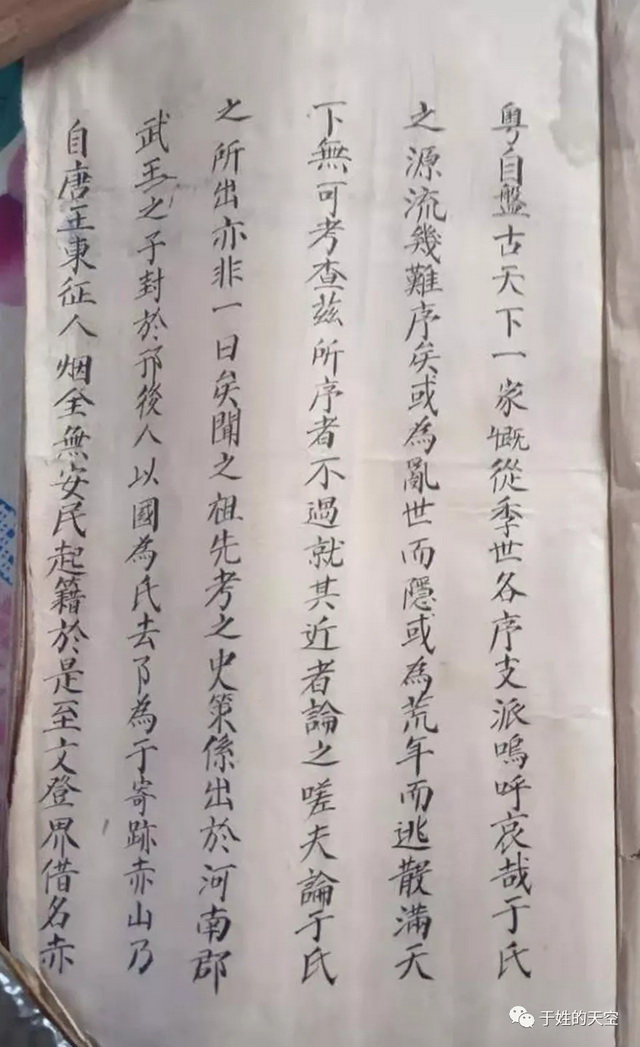 粵自盤古天下一家慨從季世各序支派嗚呼哀哉于氏
之源流幾難序矣或為亂世而隱或為荒年而逃散滿天
下無可考查茲所序者不過就其近者論之嗟夫論于氏
之所出亦非一日矣聞之祖先考之史策係出於河南郡
武王之子封於邘後人以國為氏去阝為于寄跡赤山乃
自唐王東征人烟全無安民起籍於是至文登界借名赤
于姓的天空